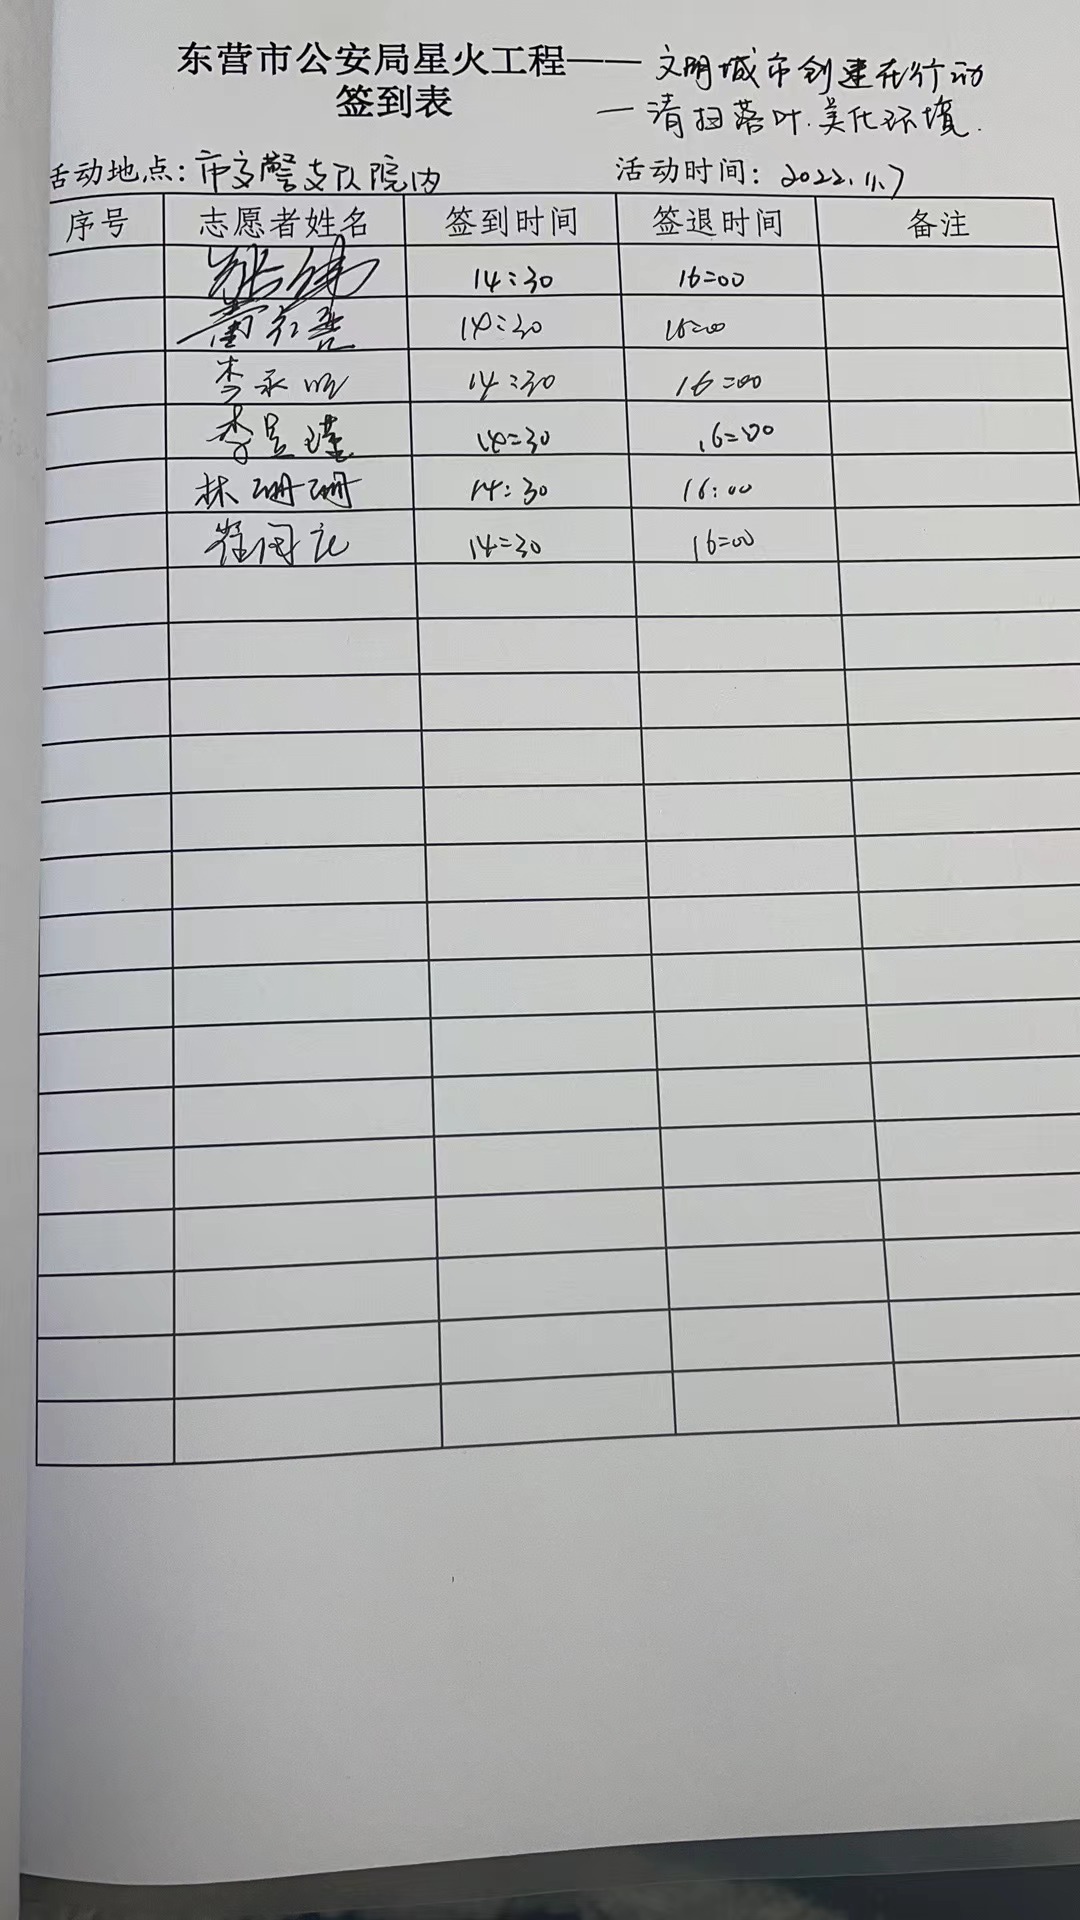 东营市公安局星火工程——文明城市创建在行动
签到表 —清扫落叶.美化环境.
活动地点:市交警支队院内 活动时间:2022.11.7
序号 志愿者姓名 签到时间 签退时间 备注
张伟 14:30 16=00
14:30 16=00
李永明 14:30 16=00
李昱瑾 14=30 16=00
林珊珊 14:30 16:00
14=30 16=00